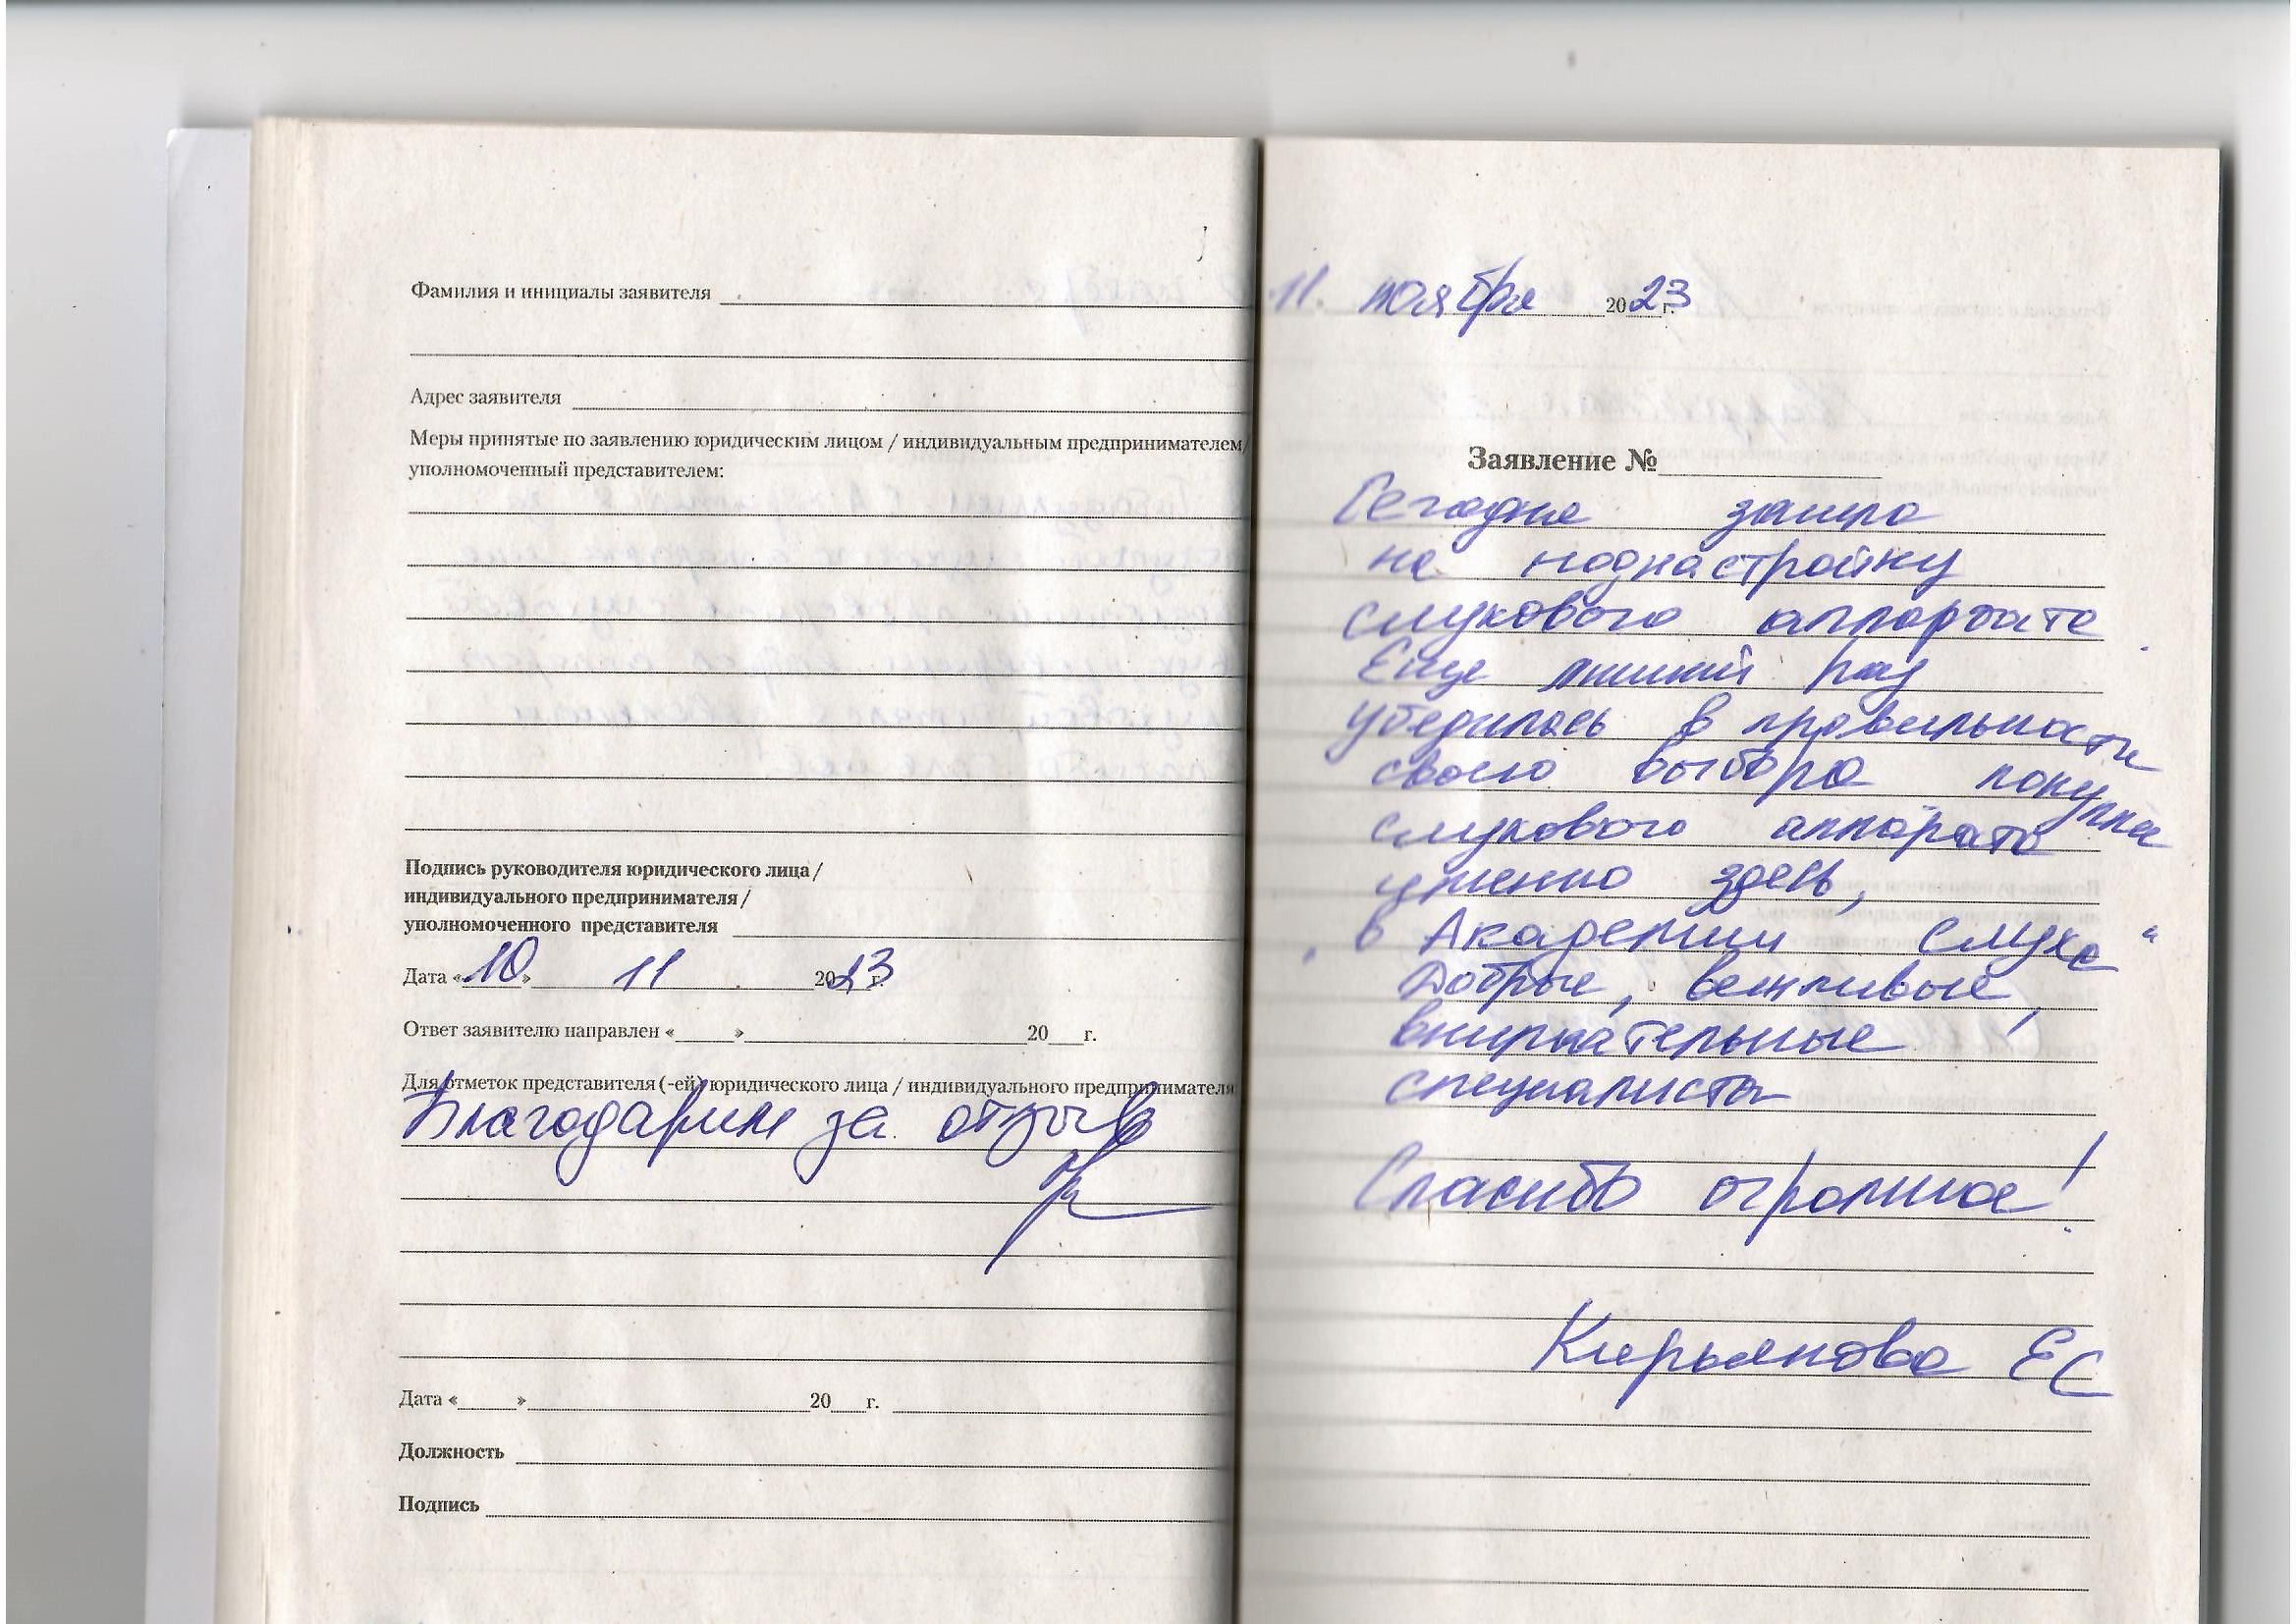 Фамилия и инициалы заявителя
Адрес заявителя
Меры принятые по заявлению юридическим лицом / индивидуальным предпринимателем/
уполномоченный представителем:
Подпись руководителя юридического лица /
индивидуального предпринимателя /
уполномоченного представителя
Дата «10» 11 2023 г.
Ответ заявителю направлен «_____»__________ 20___г.
Для отметок представителя (-ей) юридического лица / индивидуального предпринимателя
Благодарим за отзыв
Дата «_____»__________ 20___г.
Должность
Подпись
11. ноября 2023 г.
Заявление №
Сегодня зашла
на поднастройку
слухового аппарата
Еще лишний раз
убедилась в правильности
своего выбора покупки
слухового аппарата
именно здесь,
"в Академии слуха"
Добрые, вежливые,
внимательные
специалисты
Спасибо огромное!
Кирьянова ЕС